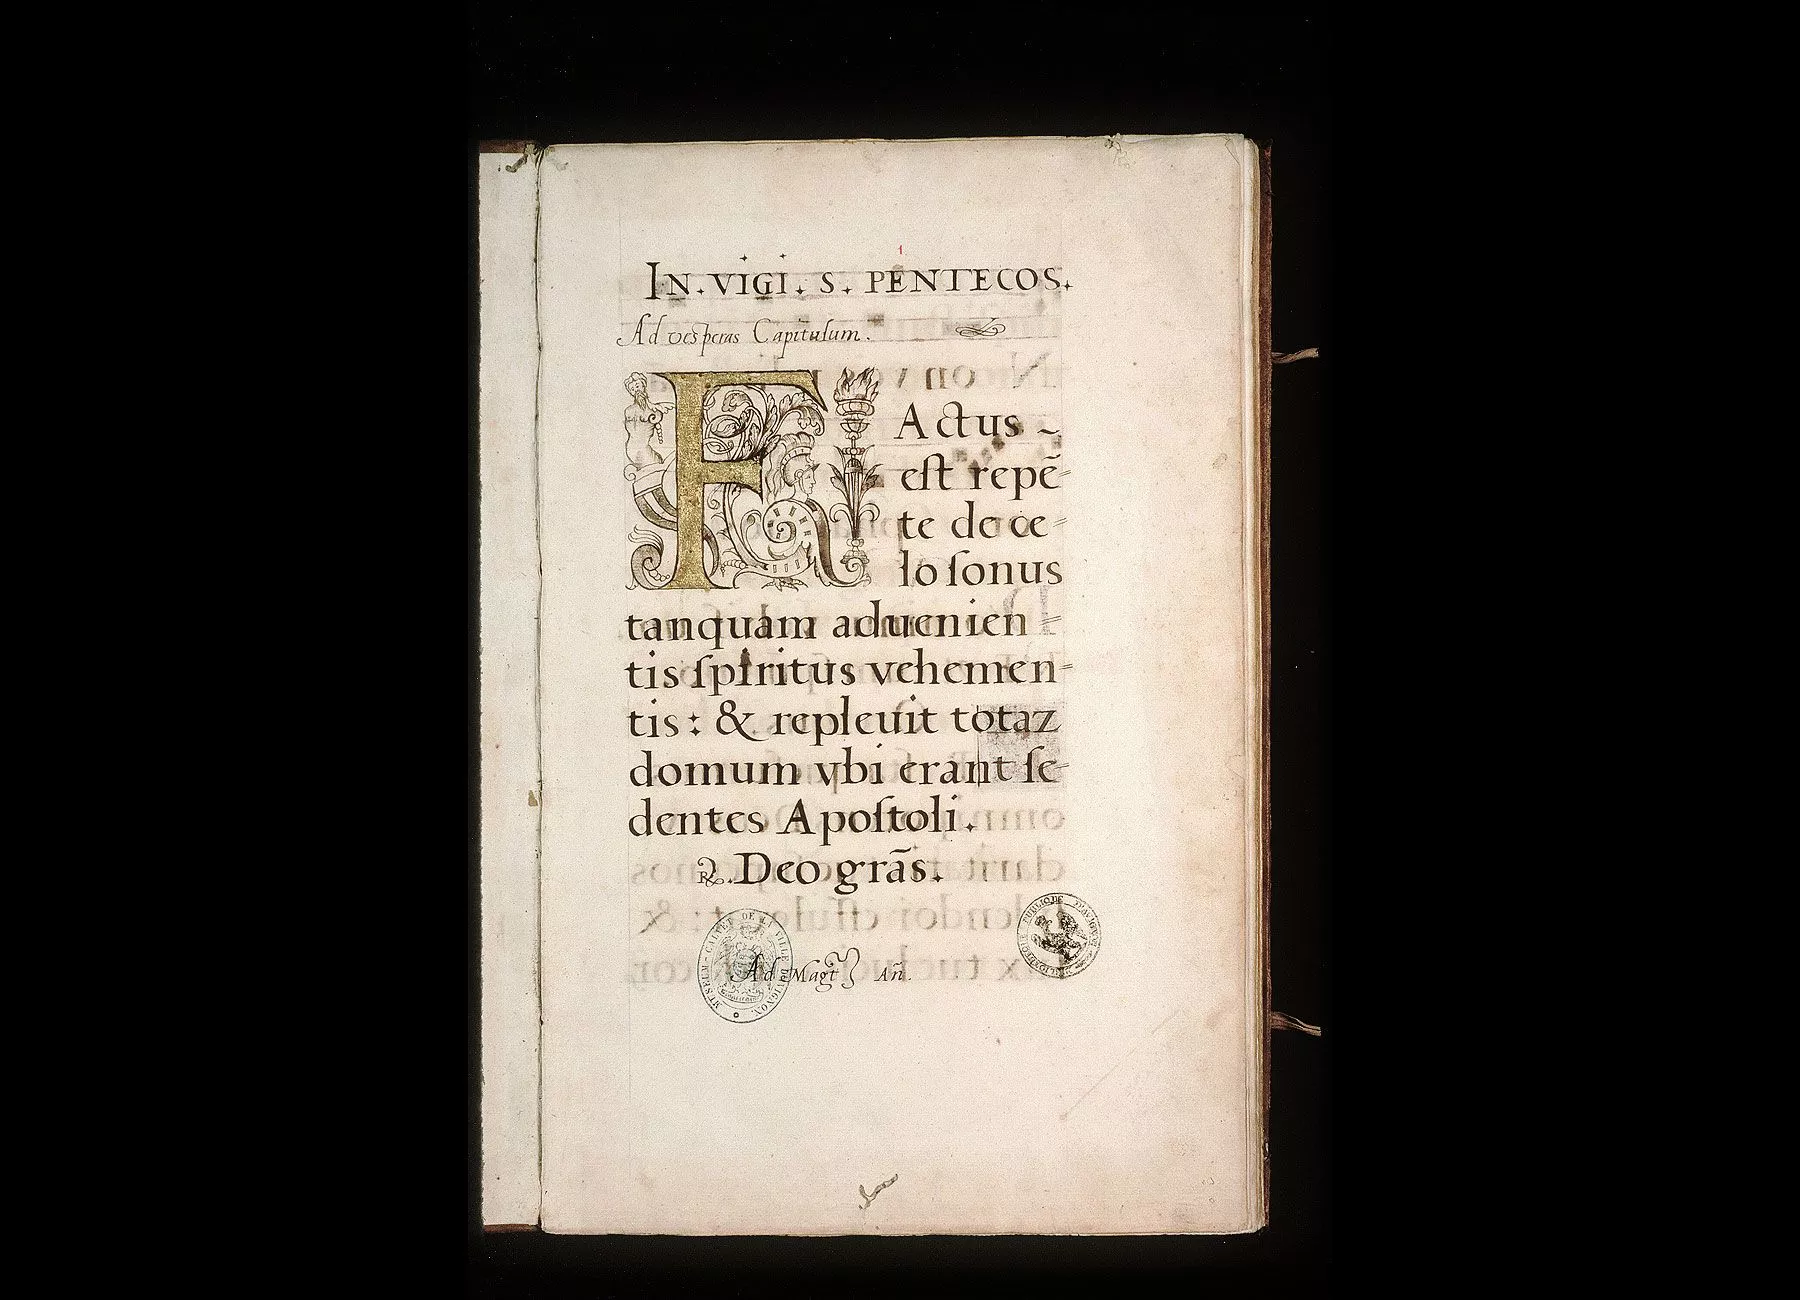 1
IN. VIGI. S. PENTECOS.
Ad vesperas Capitulum.
FActus ~
eſt repē-
te de ce-
lo ſonus
tanquam aduenien-
tis ſpiritus vehemen-
tis: & repleuit totaz
domum vbi erant ſe-
dentes Apoſtoli.
℟. Deo grãs.
MUSEUM-CALVET DE LA VILLE D'AVIGNON
Ad Magt Añ.